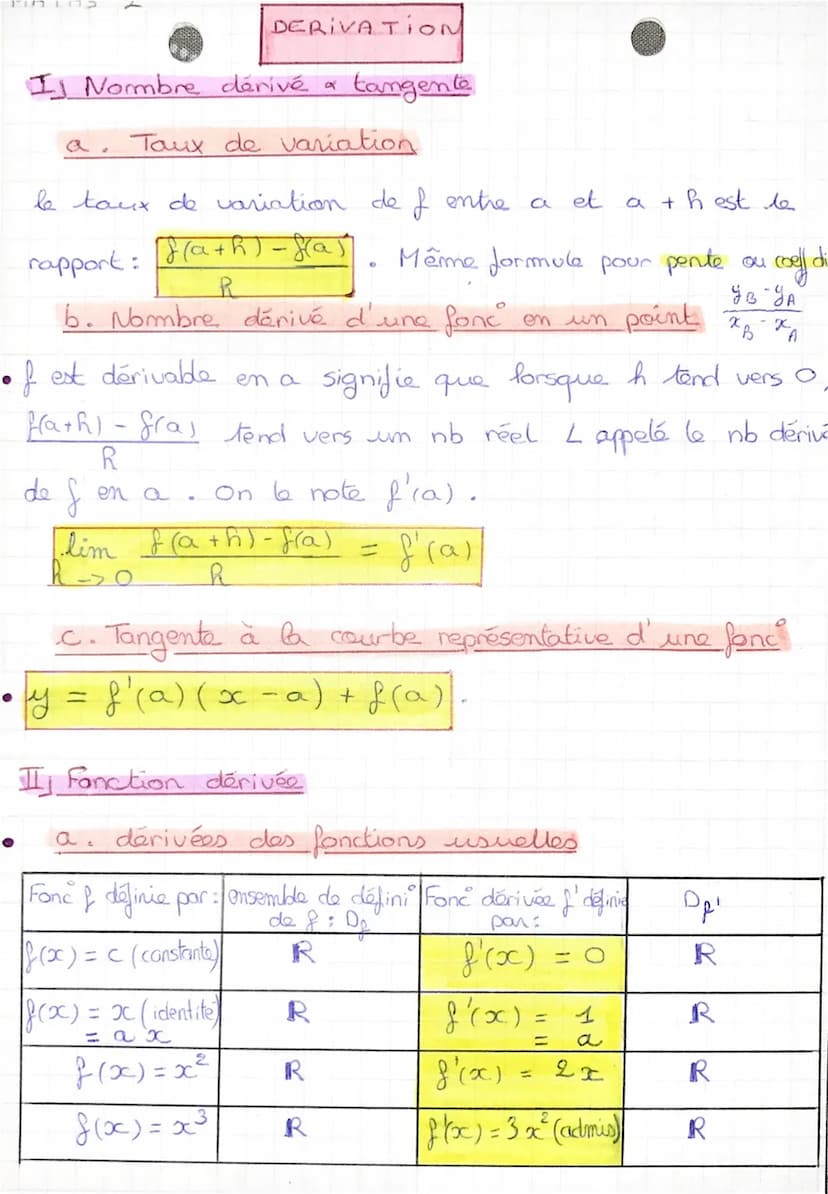 DERIVATION
I) Nombre dérivé & tangente
a. Taux de variation
le taux de variation de f entre a et a + h est le
rapport : f(a+h) - f(a) / h . Même formule pour pente ou coeff di
yB - yA / xB - xA
b. Nombre dérivé d'une fonc° en un point
• f est dérivable en a signifie que lorsque h tend vers 0,
f(a+h) - f(a) / h tend vers un nb réel L appelé le nb dérivé
de f en a. On le note f'(a).
lim h -> 0 f(a+h) - f(a) / h = f'(a)
c. Tangente à la courbe représentative d'une fonc°
• y = f'(a) (x - a) + f(a).
II) Fonction dérivée
• a. dérivées des fonctions usuelles
Fonc° f définie par : | ensemble de défini° de f : Df | Fonc° dérivée f' définie par : | Df'
f(x) = c (constante) | ℝ | f'(x) = 0 | ℝ
f(x) = x (identité) | ℝ | f'(x) = 1 | ℝ
= a x | = a
f(x) = x² | ℝ | f'(x) = 2x | ℝ
f(x) = x³ | ℝ | f'(x) = 3x² (admis) | ℝ